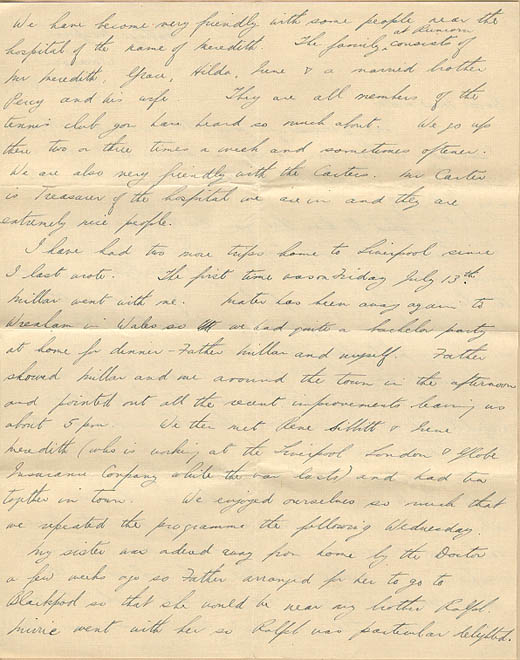 We have become very friendly with some people near the
at Runcorn
hospital of the name of Meredith. The family, consists of
Mr Meredith, Grace, Hilda, Irene & a married brother
Percy and his wife. They are all members of the
tennis club you have heard so much about. We go up
there two or three times a week and sometimes oftener.
We are also very friendly with the Carters. Mr Carter
is Treasurer of the hospital we are in and they are
extremely nice people.
I have had two more trips home to Liverpool since
I last wrote. The first time was on Friday July 13th.
Millar went with me. Mater has been away again to
Wrexham in Wales so we had quite a bachelor party
at home for dinner - Father Millar and myself. Father
showed Millar and me around the town in the afternoon
and pointed out all the recent improvements leaving us
about 5 pm. We then met Rene & Irene
Meredith (who is working at the Liverpool London & Globe
Insurance Company while the war lasts) and had tea
together in town. We enjoyed ourselves so much that
we repeated the programme the following Wednesday.
My sister was ordered away from home by the Doctor
a few weeks ago so Father arranged for her to go to
Blackpool so that she would be near my brother Ralph.
went with her so Ralph was particular delighted.